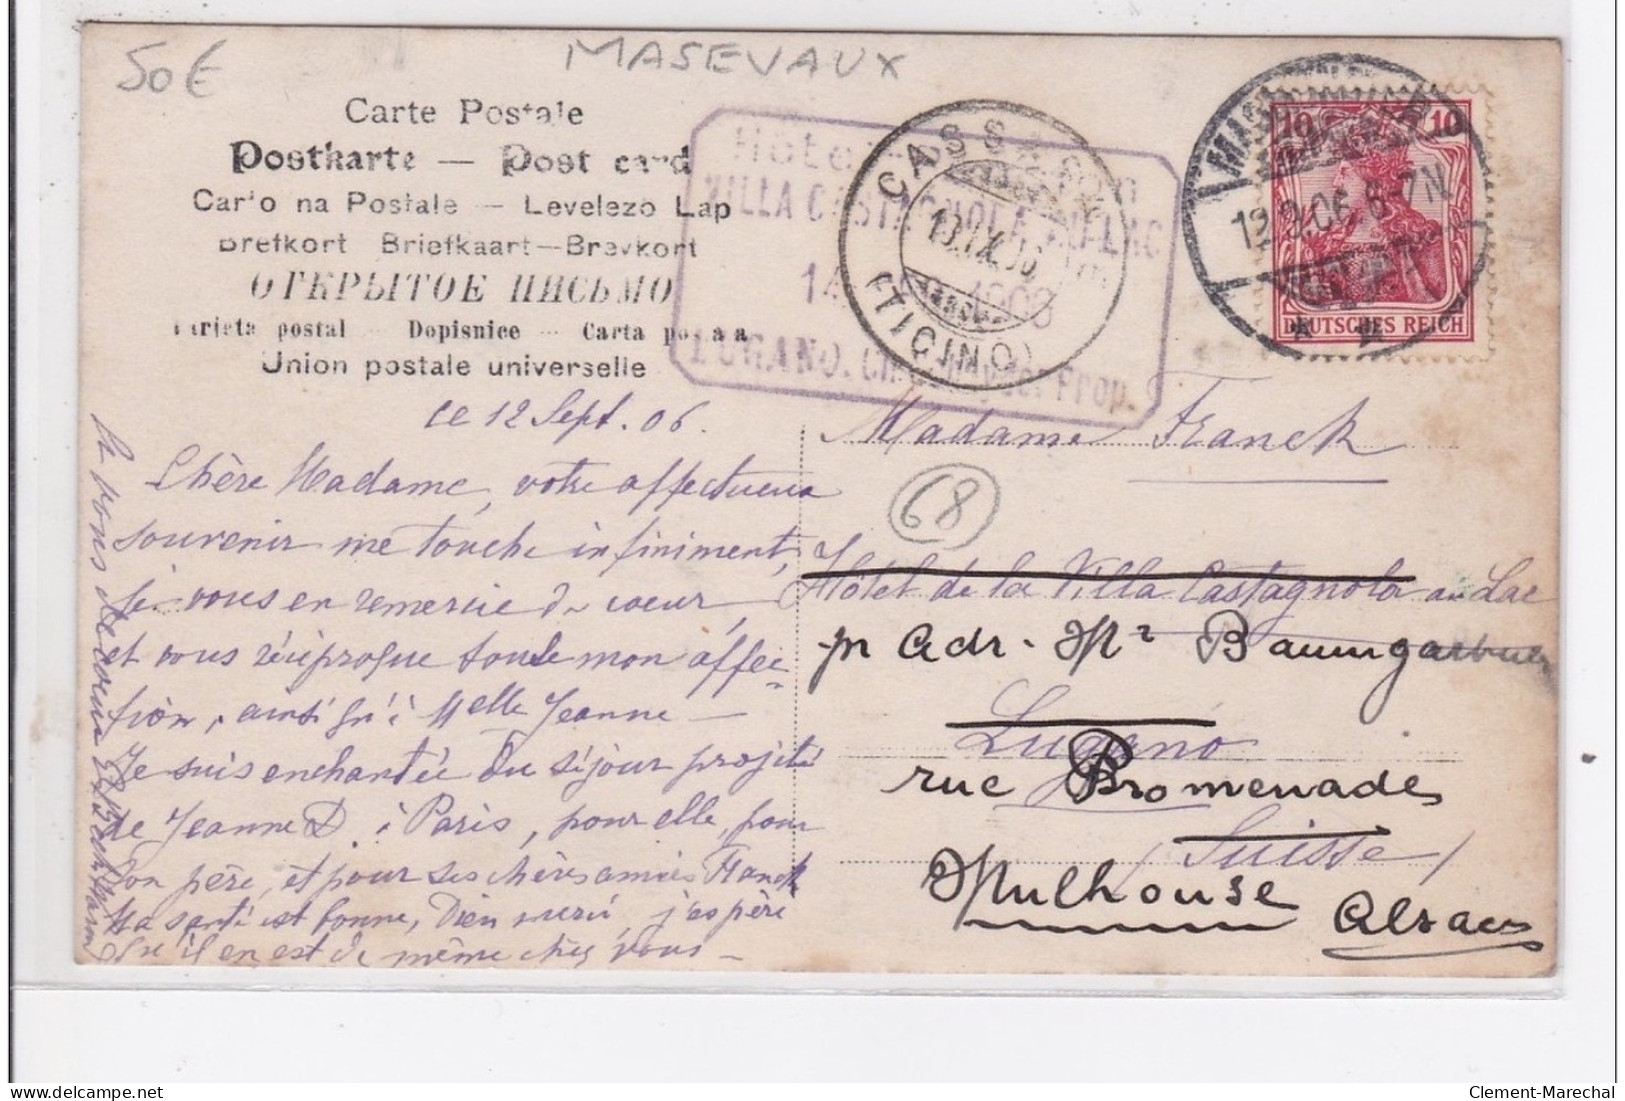 50€
MASEVAUX
Carte Postale
Postkarte — Post card
Carto na Postale — Levelezo Lap
Brefkort Briefkaart—Brevkort
ОТКРЫТОЕ ПИСЬМО
Tarjeta postal — Dopisnice — Carta postala
Union postale universelle
Hôtel
VILLA CASTAGNOLA AU LAC
14
LUGANO. Prop.
CASSARATE
(TICINO)
12.9.06 6-7N
10 10
DEUTSCHES REICH
ce 12 Sept. 06.
Chère Madame, votre affectueux
souvenir me touche infiniment,
je vous en remercie du coeur,
et vous réciproque toute mon affec-
tion, ainsi qu'à Melle Jeanne —
Je suis enchantée du séjour projeté
de Jeanne D. à Paris, pour elle, pour
son père, et pour ses chères amies Franck
Ma santé est bonne, Dieu merci, j'espère
qu'il en est de même chez vous —
Madame Franck
68
Hôtel de la Villa Castagnola au Lac
pr Adr. Mr Baumgartner
Lugano
rue Promenade
(Suisse)
Mulhouse
Alsace
Clement-Marechal